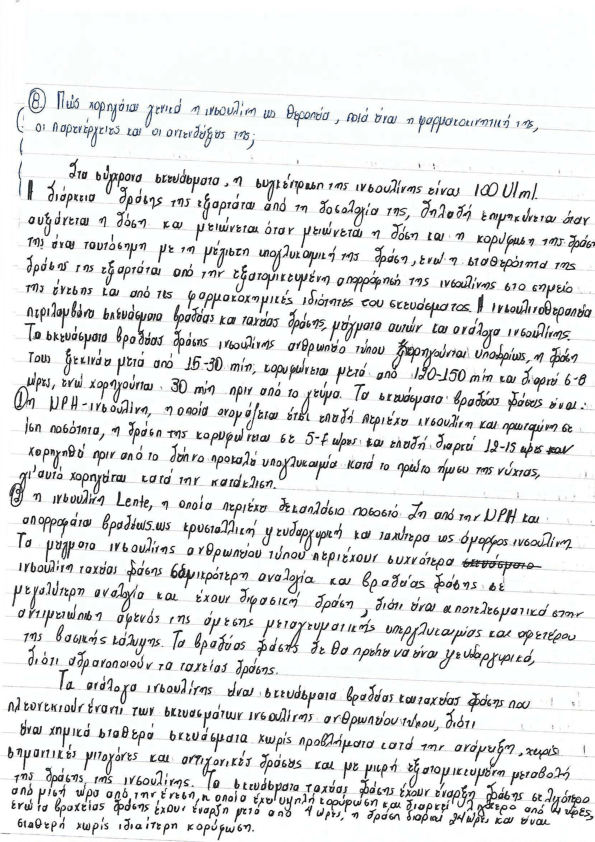 ⑧ Πώς χορηγείται γενικά η ινσουλίνη ως θεραπεία, ποιά είναι η φαρμακοκινητική της,
οι παρενέργειες και οι αντενδείξεις της;
Στα σύγχρονα σκευάσματα, η συγκέντρωση της ινσουλίνης είναι 100 U/ml.
Η διάρκεια δράσης της εξαρτάται από τη δοσολογία της, δηλαδή επιμηκύνεται όταν
αυξάνεται η δόση και μειώνεται όταν μειώνεται η δόση και η κορύφωση της δράσης
της είναι ταυτόσημη με τη μέγιστη υπογλυκαιμική της δράση, ενώ η σταθερότητα της
δράσης της εξαρτάται από την εξατομικευμένη απορρόφησή της ινσουλίνης στο σημείο
της ένεσης και από τις φαρμακοχημικές ιδιότητες του σκευάσματος. Η ινσουλινοθεραπεία
περιλαμβάνει σκευάσματα βραδείας και ταχείας δράσης, μείγματα αυτών και ανάλογα ινσουλίνης.
Τα σκευάσματα βραδείας δράσης ινσουλίνης ανθρωπείου τύπου χορηγούνται υποδορίως, η δράση
τους ξεκινάει μετά από 15-30 min, κορυφώνεται μετά από 120-150 min και διαρκεί 6-8
ώρες, ενώ χορηγούνται 30 min πριν από το γεύμα. Τα σκευάσματα βραδείας δράσεως είναι:
① η NPH-ινσουλίνη, η οποία ονομάζεται έτσι επειδή περιέχει ινσουλίνη και πρωταμίνη σε
ίση ποσότητα, η δράση της κορυφώνεται σε 5-7 ώρες και επειδή διαρκεί 12-15 ώρες
χορηγηθεί πριν από το δείπνο προκαλεί υπογλυκαιμία κατά το πρώτο ήμισυ της νύχτας,
γι'αυτό χορηγείται κατά την κατάκλιση.
② η ινσουλίνη Lente, η οποία περιέχει δεκαπλάσιο ποσοστό Zn από την NPH και
απορροφάται βραδέως ως κρυσταλλική ψευδαργυρική και ταχύτερα ως άμορφος ινσουλίνη
Τα μείγματα ινσουλίνης ανθρωπείου τύπου περιέχουν συχνότερα
ινσουλίνη ταχείας δράσης σε μικρότερη αναλογία και βραδείας δράσης σε
μεγαλύτερη αναλογία και έχουν διφασική δράση, διότι είναι αποτελεσματικά στην
αντιμετώπιση αφενός της άμεσης μεταγευματικής υπεργλυκαιμίας και αφετέρου
της βασικής κάλυψης. Τα βραδείας δράσης δε θα πρέπει να είναι ψευδαργυρικά,
διότι αδρανοποιούν τα ταχείας δράσης.
Τα ανάλογα ινσουλίνης είναι σκευάσματα βραδείας και ταχείας δράσης που
πλεονεκτούν έναντι των σκευασμάτων ινσουλίνης ανθρωπείου τύπου, διότι
είναι χημικά σταθερά σκευάσματα χωρίς προβλήματα κατά την ανάμειξη, χωρίς
σημαντικές μιτογόνες και αντιγονικές δράσεις και με μικρή εξατομικευμένη μεταβολή
της δράσης της ινσουλίνης. Τα σκευάσματα ταχείας δράσης έχουν έναρξη δράσης σε λιγότερο
από μισή ώρα από την ένεση, η οποία έχει υψηλή κορύφωση και διαρκεί λιγότερο από 4 ώρες,
ενώ τα βραχείας δράσης έχουν έναρξη μετά από 4 ώρες, η δράση διαρκεί 24 ώρες και είναι
σταθερή χωρίς ιδιαίτερη κορύφωση.